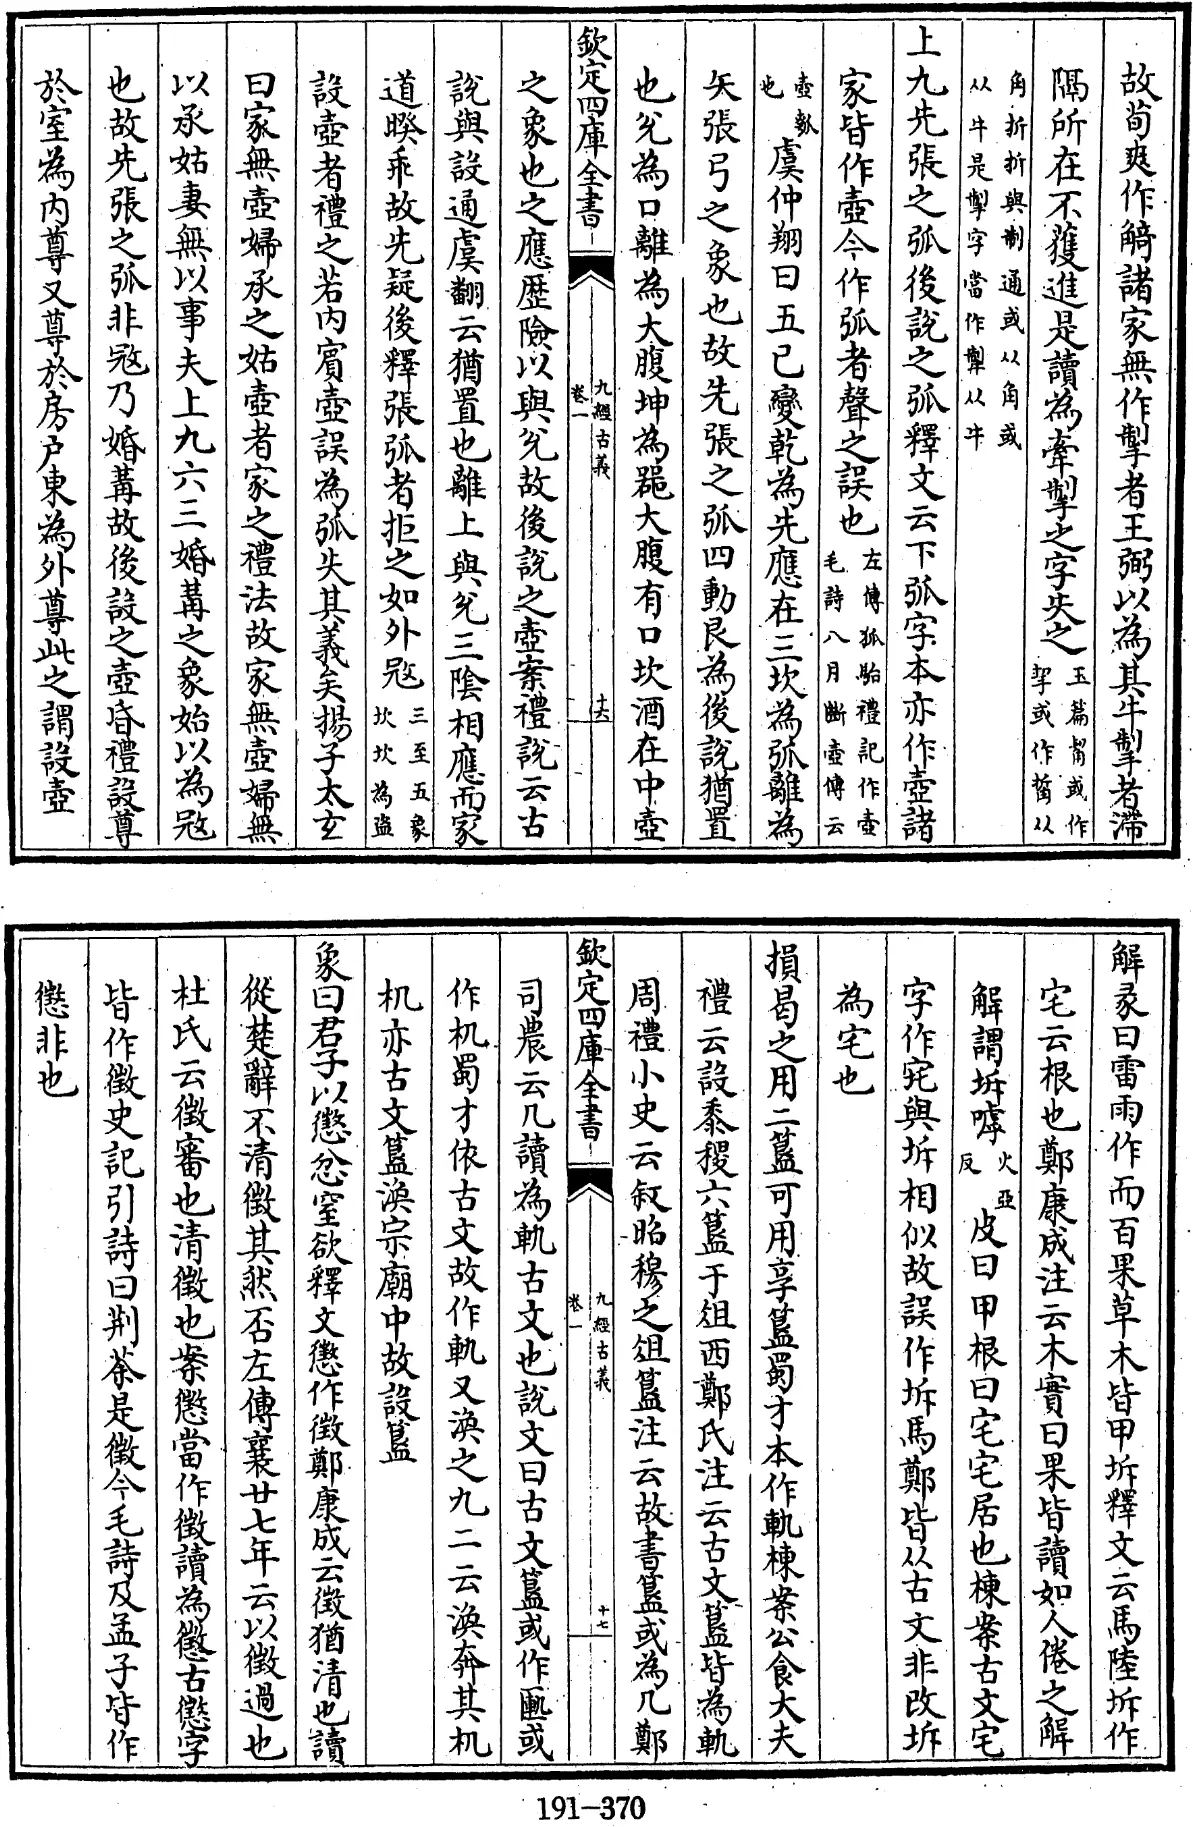 故荀爽作觭諸家無作掣者王弼以為其牛掣者滯
隔所在不獲進是讀為牽掣之字失之玉篇觢或作挈或作㓶从
角折折與制通或从角或从牛是犎字當作犎从牛
上九先張之弧後說之弧釋文云下弧字本亦作壺諸
家皆作壺今作弧者聲之誤也左傳狐駘禮記作壺毛詩八月斷壺傳云
壺瓠也虞仲翔曰五已變乾為先應在三坎為弧離為
矢張弓之象也故先張之弧四動艮為後說猶置
也兊為口離為大腹坤為噐大腹有口坎酒在中壺
欽定四庫全書 九經古義 卷一 十六
之象也之應歴險以與兊故後說之壺案禮說云古
說與設通虞翻云猶置也離上與兊三陰相應而家
道暌乖故先疑後釋張弧者拒之如外宼三至五象坎坎為盜
設壺者禮之若内賓壺誤為弧失其義矣揚子太玄
曰家無壺婦承之姑壺者家之禮法故家無壺婦無
以承姑妻無以事夫上九六三婚冓之象始以為宼
也故先張之弧非宼乃婚冓故後設之壺昏禮設尊
於室為内尊又尊於房户東為外尊此之謂設壺
解彖曰雷雨作而百果草木皆甲坼釋文云馬陸坼作
宅云根也鄭康成注云木實曰果皆讀如人倦之解
解謂坼嘑火亞反皮曰甲根曰宅宅居也棟案古文宅
字作㡯與坼相似故誤作坼馬鄭皆从古文非改坼
為宅也
損曷之用二簋可用享簋蜀才本作軌棟案公食大夫
禮云設黍稷六簋于俎西鄭氏注云古文簋皆為軌
周禮小史云叙昭穆之俎簋注云故書簋或為几鄭
欽定四庫全書 九經古義 卷一 十七
司農云几讀為軌古文也說文曰古文簋或作匭或
作机蜀才依古文故作軌又渙之九二云渙奔其机
机亦古文簋渙宗廟中故設簋
象曰君子以懲忿窒欲釋文懲作徵鄭康成云徵猶清也讀
從楚辭不清徵其然否左傳襄廿七年云以徵過也
杜氏云徵審也清徵也案懲當作徵讀為懲古懲字
皆作徵史記引詩曰荆荼是徵今毛詩及孟子皆作
懲非也
191-370